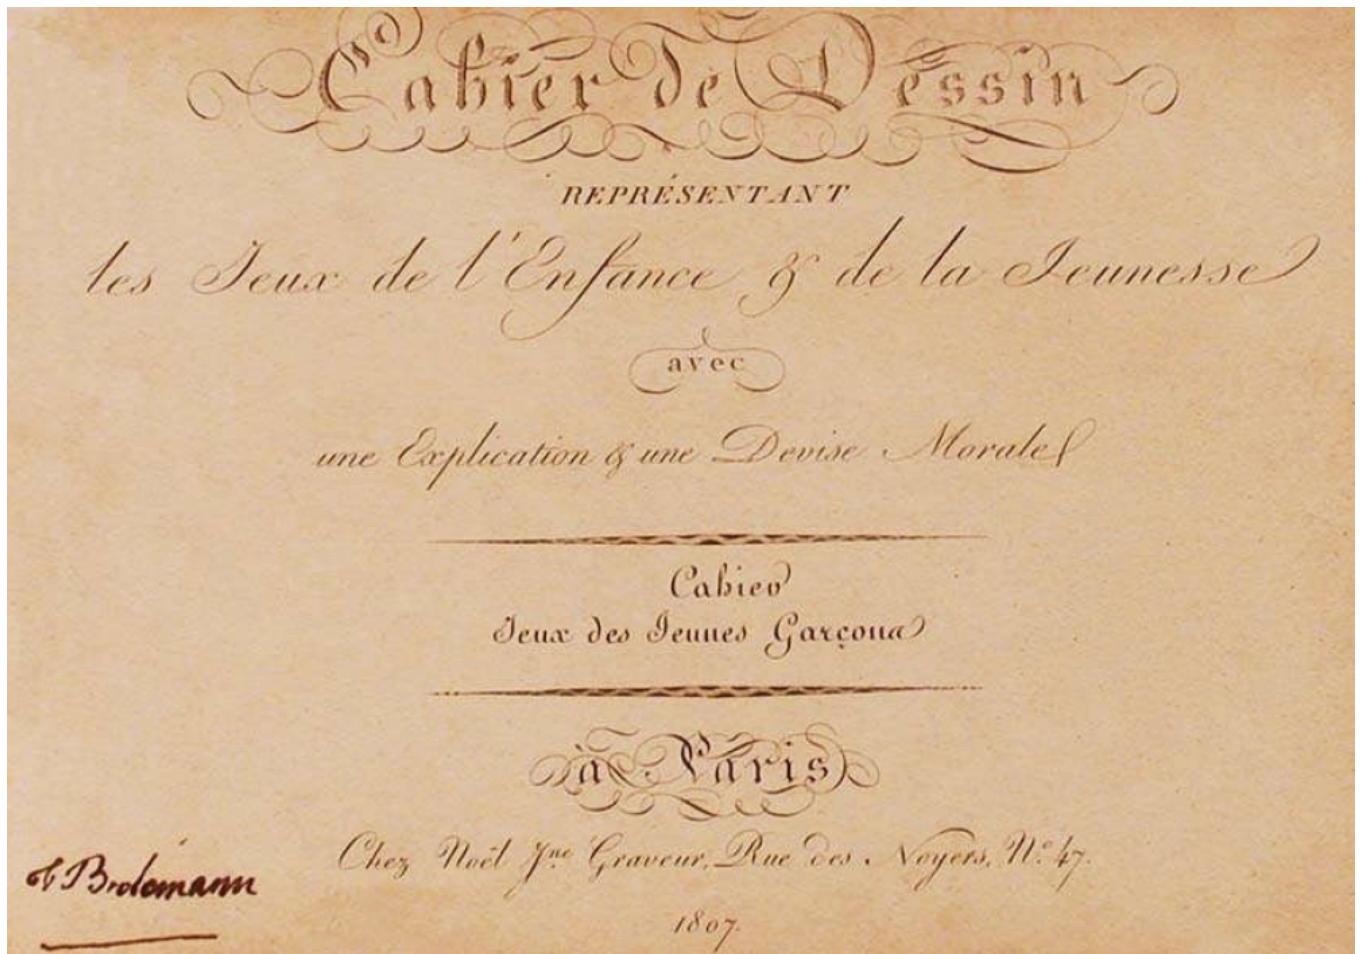 Cahier de Dessin
REPRÉSENTANT
les Jeux de l'Enfance & de la Jeunesse
avec
une Explication & une Devise Morale
Cahier
Jeux des Jeunes Garçons
à Paris
Chez Noël Jne Graveur, Rue des Noyers, No. 47.
Brolemann
1807.